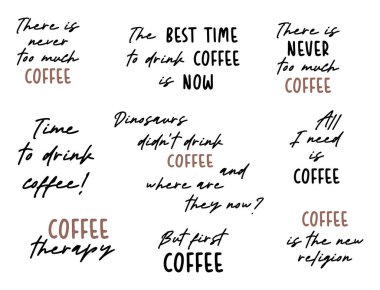 There is
never
too much
COFFEE
The BEST TIME
to drink COFFEE
is NOW
There is
NEVER
too much
COFFEE
Time
to drink
coffee!
Dinosaurs
didn't drink
COFFEE
and
where are
they now?
All
I need
is
COFFEE
COFFEE
therapy
But first
COFFEE
COFFEE
is the new
religion